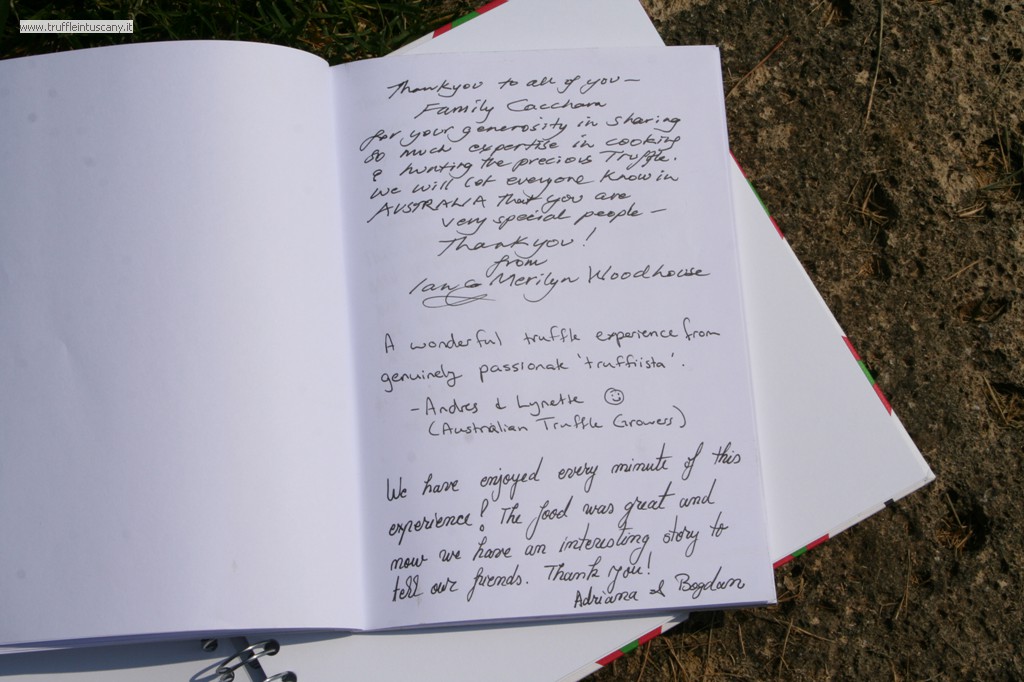 www.truffleintuscany.it
Thankyou to all of you –
Family Cacchara
for your generosity in sharing
so much expertise in cooking
& hunting the precious Truffle.
We will let everyone know in
AUSTRALIA that you are
very special people –
Thankyou!
from
Ian & Merilyn Woodhouse
A wonderful truffle experience from
genuinely passionate 'truffiista'.
- Andres & Lynette ☺
(Australian Truffle Growers)
We have enjoyed every minute of this
experience! The food was great and
now we have an interesting story to
tell our friends. Thank you!
Adriana & Bogdan